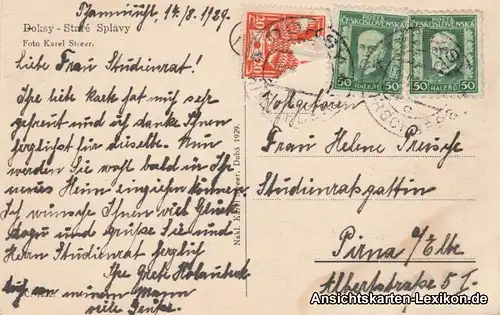 Thammühl 14./8. 1929.
Doksy - Staré Splavy
Foto Karel Streer.
Liebe Frau Studienrat!
Ihre liebe Karte hat mich sehr
gefreut und ich danke Ihnen
herzlichst für dieselbe. Nun
werden Sie wohl bald in Ihr
neues Heim einziehen können.
Ich wünsche Ihnen viel Glück
dazu und grüsse Sie und
Herrn Studienrat herzlich
Ihre Gretl
auch von meinem Mann
viele Grüße.
Nakl. Karel Streer, Dubá 1929.
20
ČESKOSLOVENSKO
50 HALÉŘŮ 50
ČESKOSLOVENSKO
50 HALÉŘŮ 50
Frau Helene
Studienratsgattin
Pirna a/Elbe
Albertstraße 5 I.
Ansichtskarten-Lexikon.de